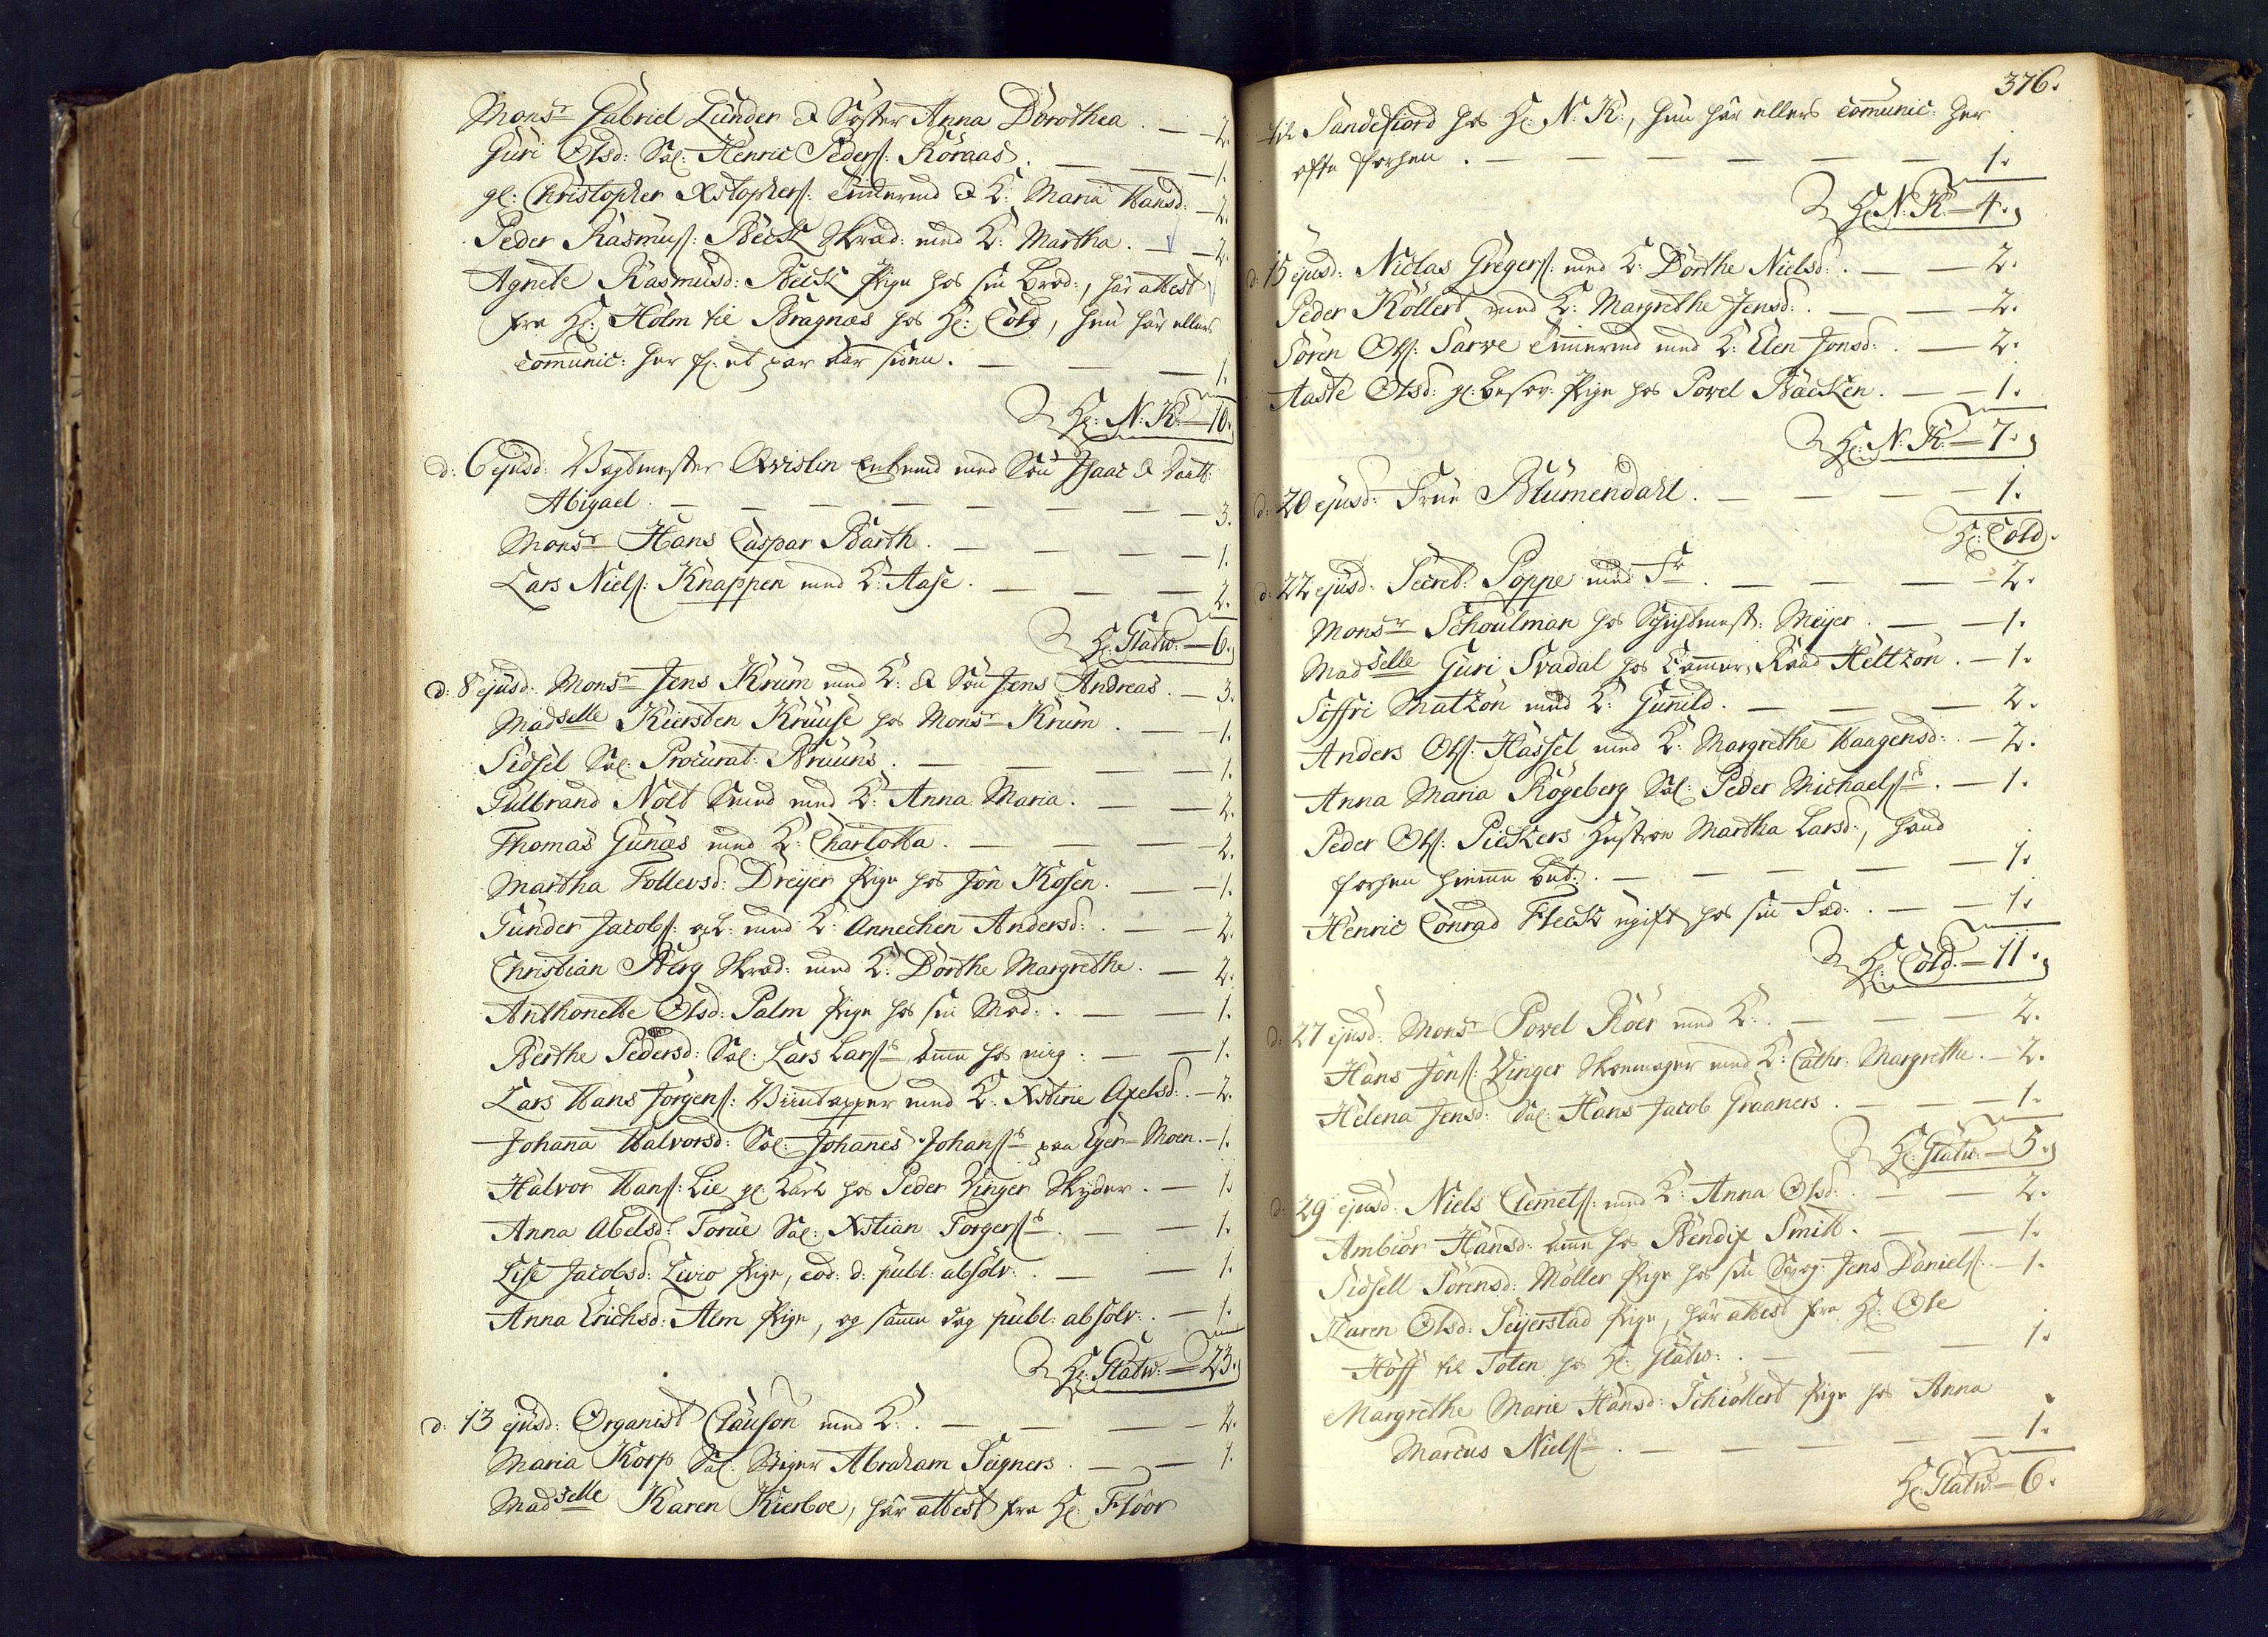 Mons.r Gabriel Lunder & Søster Anna Dorothea. — 2.
Guri Olsd: Sal: Henric Peders: Roraas. — — — 1.
gl: Christopher Xstophers: Tømmermd & K: Maria Hansd: — 2.
Peder Rasmus: Beck Skræd: med K: Martha. — 2.
Agnete Rasmusd: Beck Pige hos sin Brod:, har attest
fra Hr: Holm til Bragnæs hos Hr: Cold, hun har ellers
communic: her for et par Aar siden. — — — 1.
Hr: N: K: — 10.
d: 6 ejusd: Vagtmester Qvislin Enkemd med Søn Isaac & Daatt:
Abigael. — — — — — — — 3.
Mons.r Hans Caspar Barth. — — — — 1.
Lars Niels: Knappen med K: Aase. — — — 2.
Hr: Statw: — 6.
d: 8 ejusd: Mons.r Jens Krum med K: & Søn Jens Andreas. — 3.
Madselle Kiersten Kruuse hos Mons.r Krum. — — 1.
Sidsel Sal: Procurat: Bruuns. — — — — 1.
Gulbrand Nolt Smed med K: Anna Maria. — — 2.
Thomas Gunæs med K: Charlotta. — — — 2.
Martha Tollevsd: Dreyer Pige hos Jon Kosen. — — 1.
Gunder Jacobs: med K: Annechen Andersd: — — 2.
Christian Berg Skræd: med K: Dorthe Margrethe. — 2.
Anthonette Olsd: Palm Pige hos sin Mod: — — 1.
Berthe Pedersd: Sal: Lars Lars: Amme hos mig. — — 1.
Lars Hans Jørgens: Viintapper med K: Xstine Axelsd: — 2.
Johana Halvorsd: Sal: Johanes Johans: paa Eger-Moen. — 1.
Halvor Hans: Lie gl: Karl hos Peder Vinger Skyder. — 1.
Anna Abelsd: Torue Sal: Xstian Torgers: — — 1.
Lise Jacobsd: Livio Pige, eod: d: publ: absolv: — — 1.
Anna Erichsd: Alm Pige, og samme dag publ: absolv: — 1.
Hr: Statw: — 23.
d: 13 ejusd: Organist Clauson med K: — — — 2.
Maria Korp Sal: Stiger Abraham Seigners. — — 1.
Madselle Karen Kierboe, har attest fra Hr: Floor
376.
til Sandefiord hos Hr: N: K:, hun har ellers communic: her
ofte forhen. — — — — — — 1.
Hr: N: K: — 4.
d: 15 ejusd: Niclas Gregers: med K: Dorthe Nielsd: — — 2.
Peder Kollert med K: Margrethe Jensd: — — 2.
Søren Ols: Sarve Tømmermd med K: Elen Jonsd: — 2.
Aaste Olsd: gl: besov: Pige hos Povel Backen. — — 1.
Hr: N: K: — 7.
d: 20 ejusd: Frue Blumendahl. — — — — 1.
Hr: Cold.
d: 22 ejusd: Secret: Poppe med Fr. — — — — 2.
Mons.r Schoulman hos Schichtmest: Meyer. — — 1.
Madselle Guri Svadal hos Cammer-Raad Heltzon. — 1.
Siffri Matzon med K: Gunild. — — — 2.
Anders Ols: Hassel med K: Margrethe Haagensd: — 2.
Anna Maria Rogeberg Sal: Peder Michaels: — 1.
Peder Ols: Pickers Hustroe Martha Larsd:, hand
forhen hiemme bet: — — — — 1.
Henric Conrad Fleck ugift hos sin Fad: — — 1.
Hr: Cold. — 11.
d: 27 ejusd: Mons.r Povel Roer med K: — — — 2.
Hans Jons: Vinger Skoemager med K: Cathr: Margrethe. — 2.
Helena Jensd: Sal: Hans Jacob Graaners. — — — 1.
Hr: Statw: — 5.
d: 29 ejusd: Niels Clemets: med K: Anna Olsd: — — 2.
Ambiør Hansd: Amme hos Bendix Smitt. — — 1.
Sidsell Sørensd: Møller Pige hos sin Svog: Jens Daniels: — 1.
Karen Olsd: Seyerstad Pige, har attest fra Hr: Ole
Hoff til Toten hos Hr: Statw: — — — 1.
Margrethe Marie Hansd: Schiøllert Pige hos Anna
Marcus Niels: — — — — — 1.
Hr: Statw: — 6.